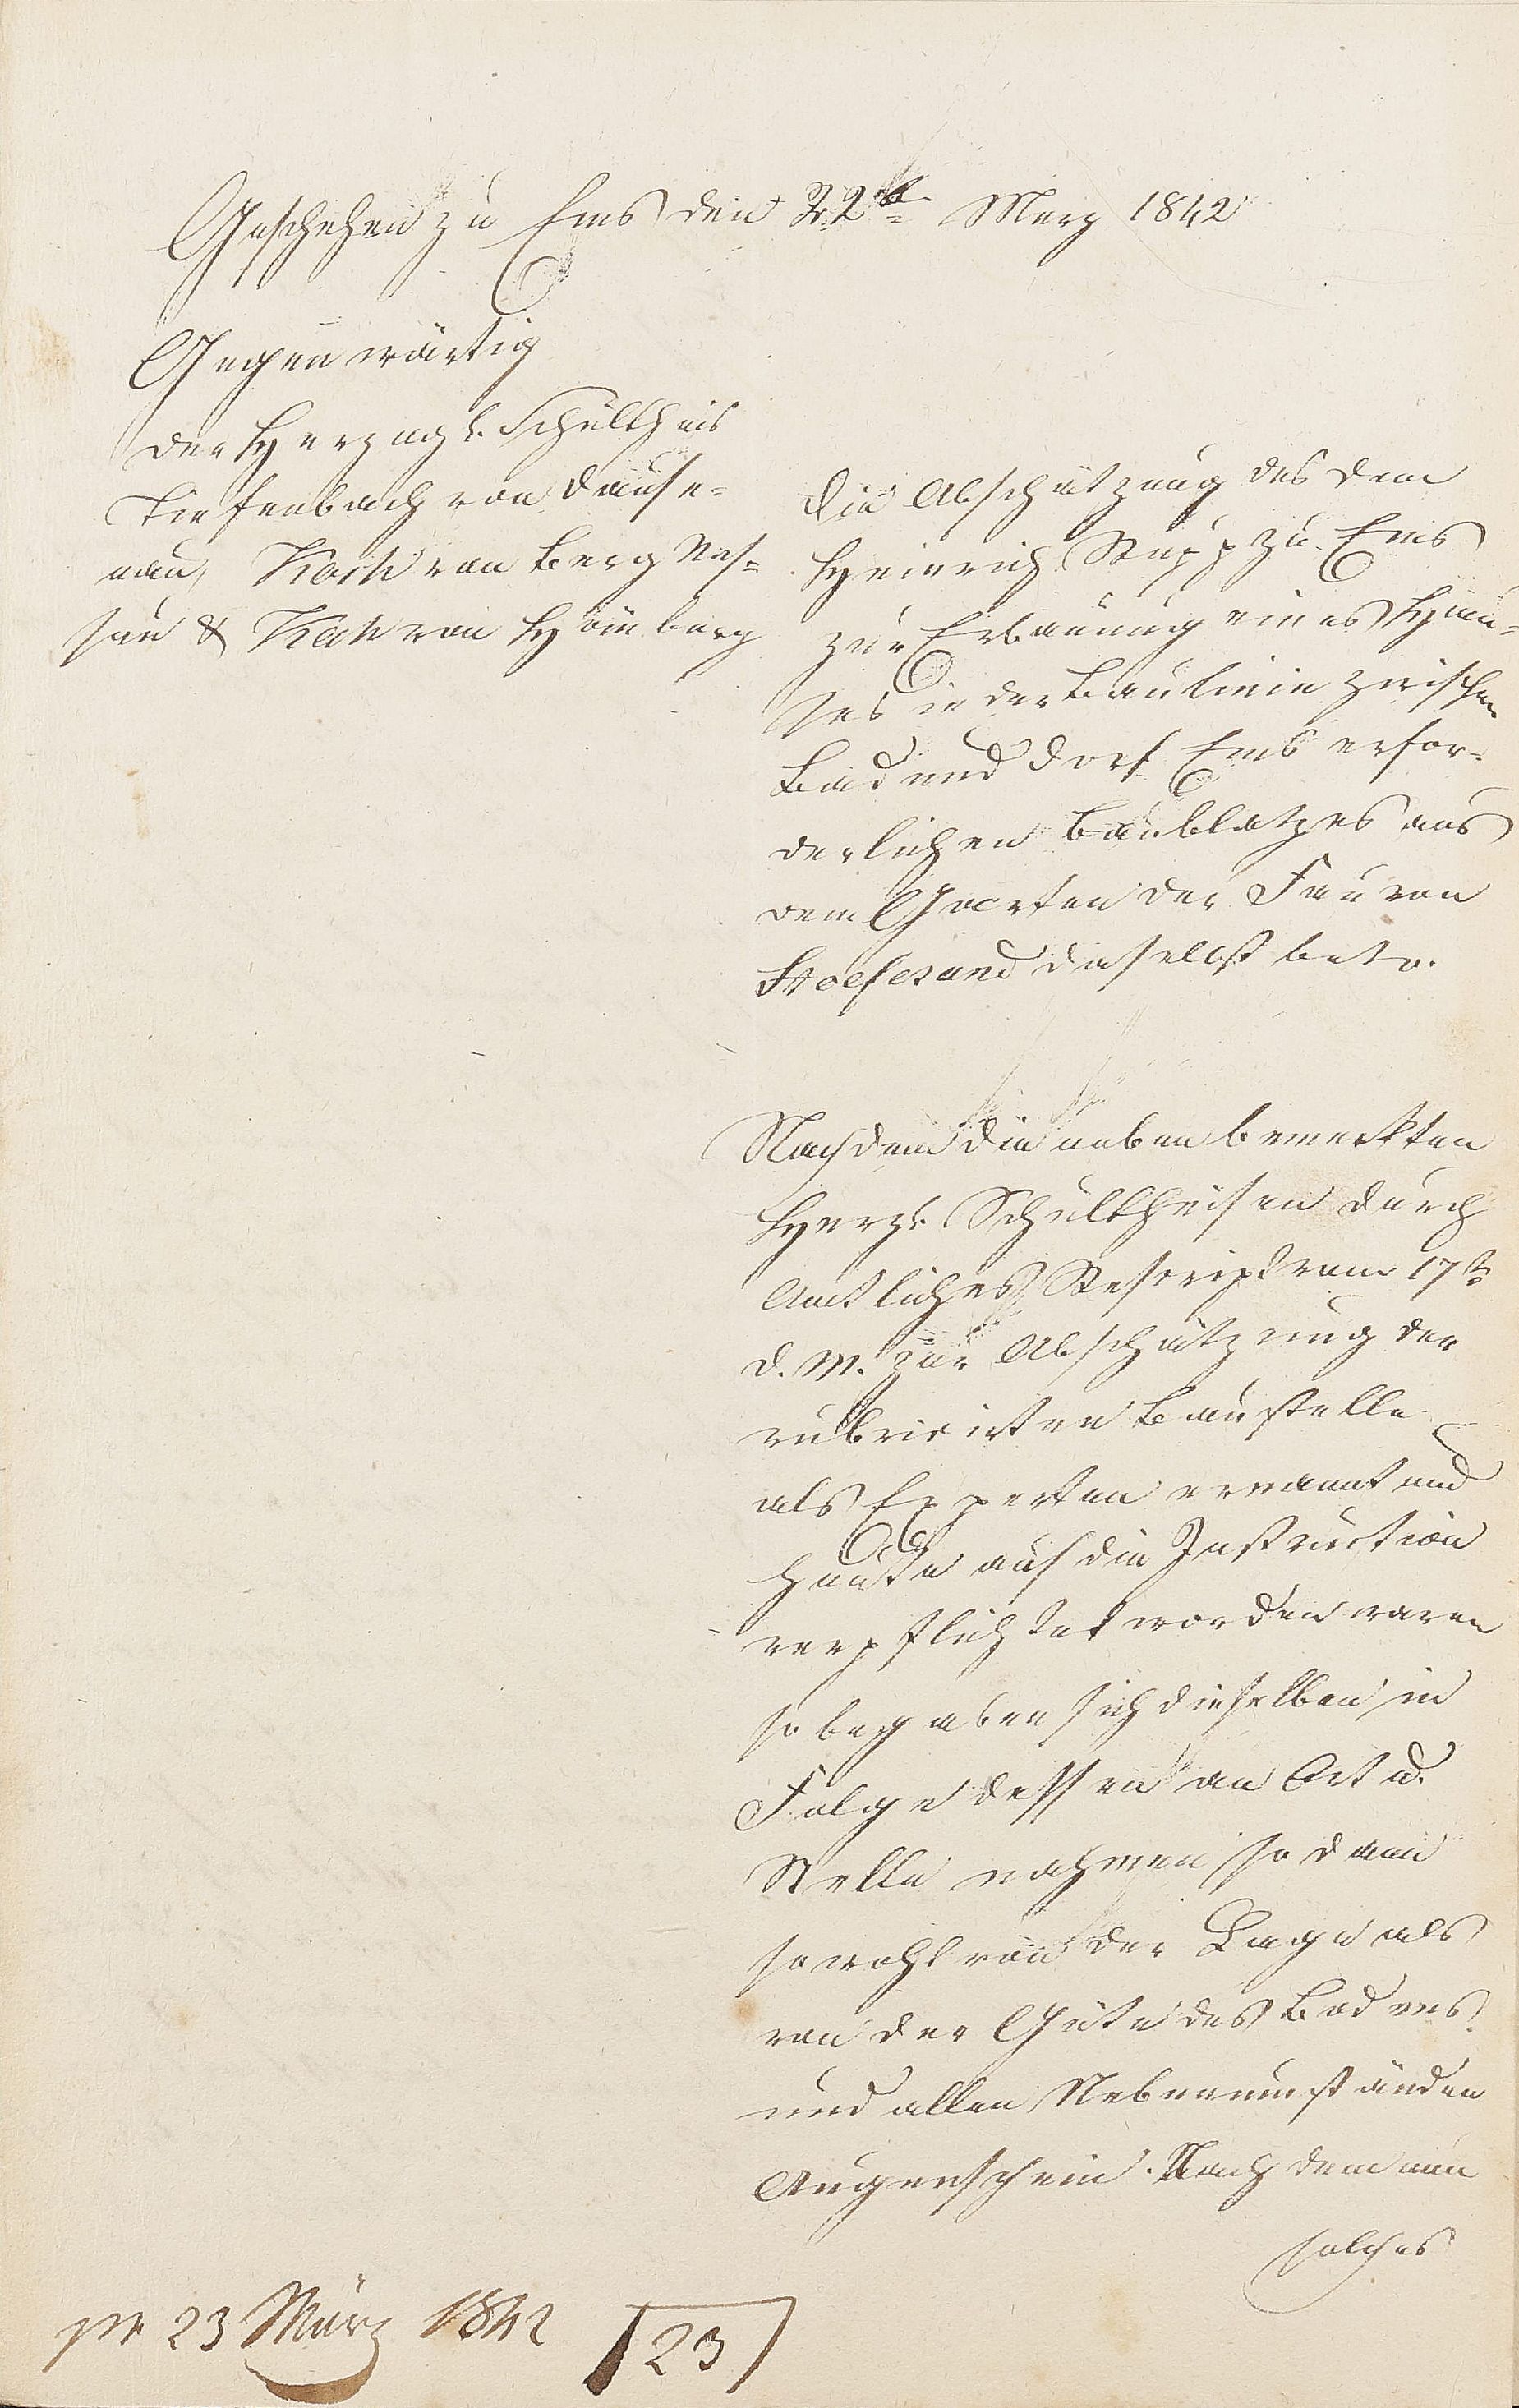 Geschehen zu Ems den 22t Merz 1842
Gegenwärtig
der Herzogl. Schultheis
Tiefenbach von Dause-
nau, Koch von Berg Nas-
sau & Koch von Hömberg
Die Abschätzung des dem
Heinrich Rupp zu Ems
zur Erbauung eines Hau-
ses in der Baulinie zwischen
Bad und Dorf Ems erfor-
derlichen Baublatzes aus
dem Garten der Frau von
daselbst betr.
Nachdem die neben bemerkten
Herzl. Schultheisen durch
Amtliches Rescript vom 17t
d. M. zur Abschätzung der
rubricirten Baustelle
als Experten ernannt und
heute auf die Instruction
verpflichtet worden waren
so begaben sich dieselben in
Folge dessen an Ort u.
Stelle nahmen sodann
sowohl von der Lage als
von der Güte des Bodens
und allen Nebenumständen
Augenschein. Nachdem nun
solches
pr 23 März 1842
23